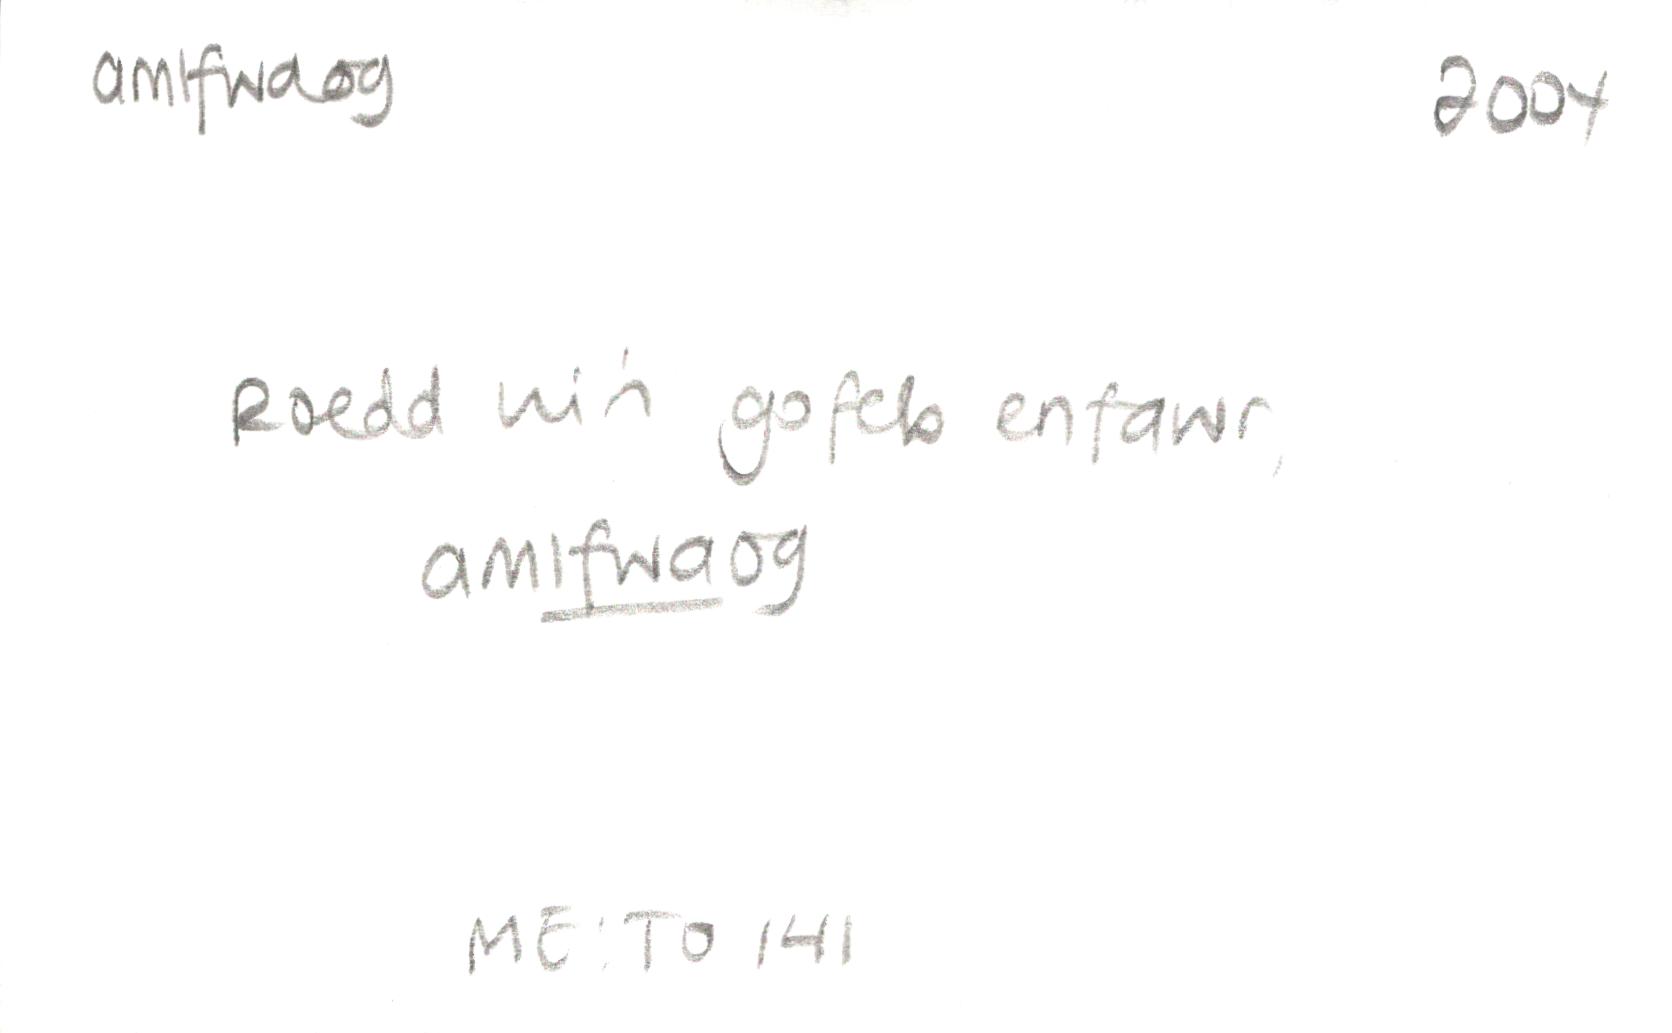 amlfwaog 2004
Roedd hi'n gofeb enfawr,
amlfwaog
ME:TO 141